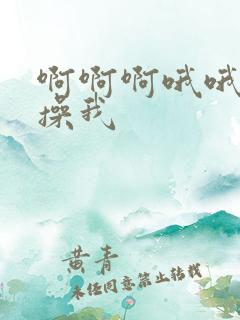 啊啊啊哦哦
操我
黄青
未经同意禁止转载